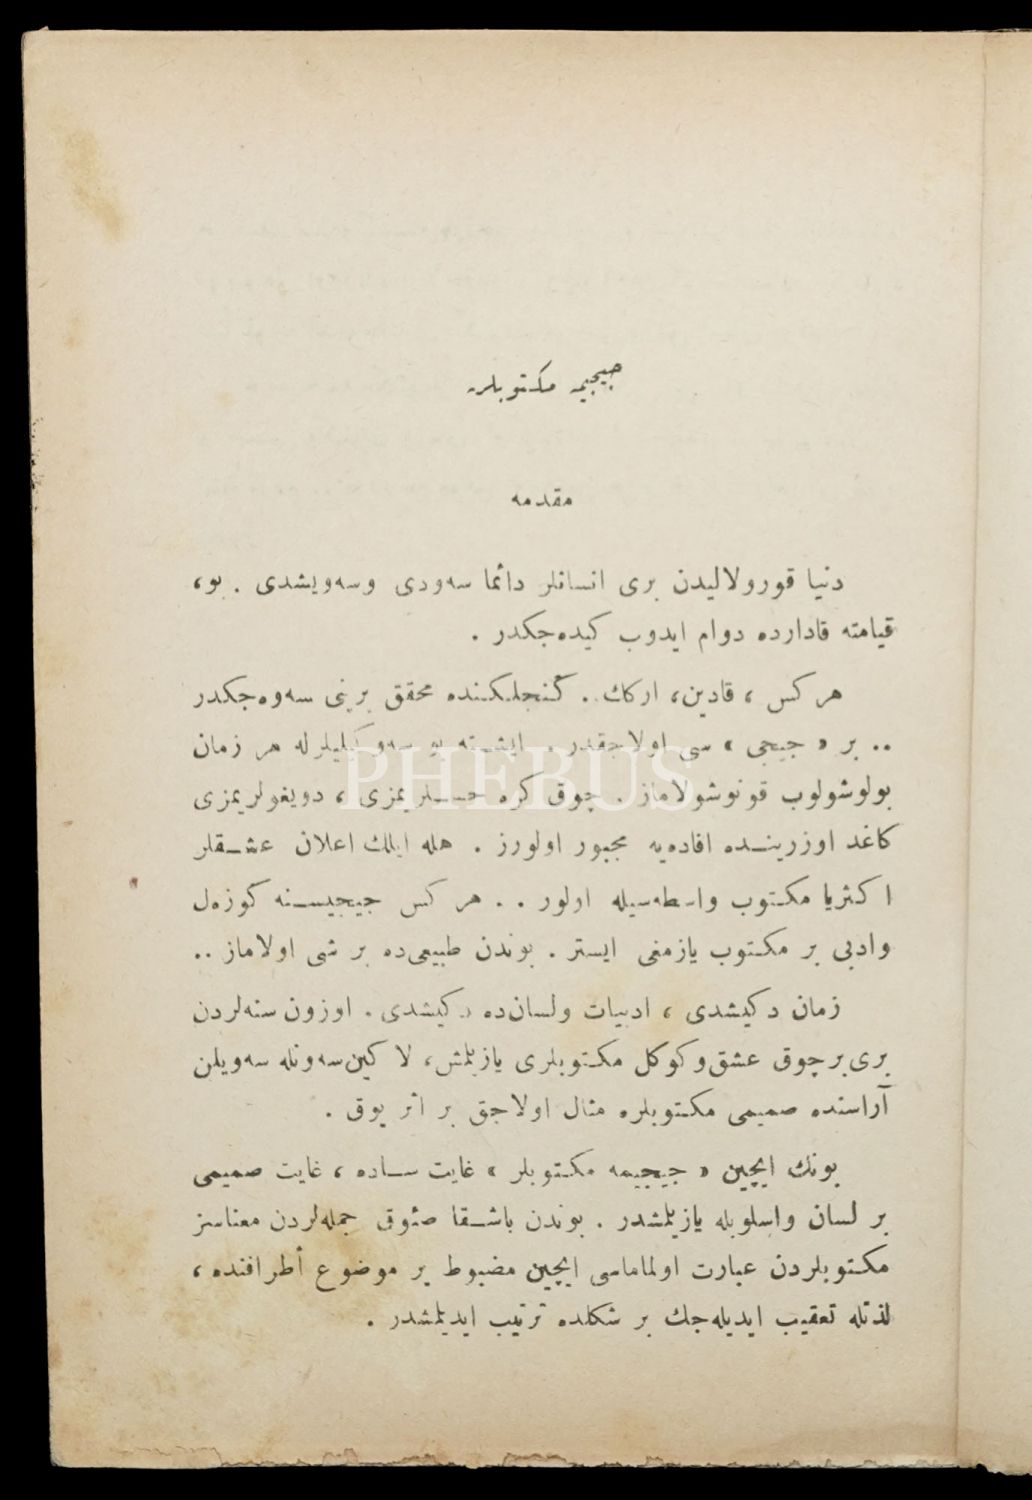 جيجيمه مكتوبلر
مقدمه
دنيا قورولاليدن برى انسانلر دائما سه‌ودى وسه‌ويشدى . بو،
قيامته قادارده دوام ايدوب كيده‌جكدر .
هر كس ، قادين، اركك .. كنجلكنده محقق برينى سه‌وه‌جكدر
.. بر « جيجى » سى اولاجقدر . ايشته بو سه‌وكيليلرله هر زمان
بولوشولوب قونوشولاماز . چوق كره حسلريمزى ، دويغولريمزى
كاغد اوزرينده افاده‌يه مجبور اولورز . هله ايلك اعلان عشقلر
اكثريا مكتوب واسطه‌سيله اولور .. هر كس جيجيسنه كوزه‌ل
وادبى بر مكتوب يازمغى ايستر . بوندن طبيعى‌ده بر شى اولاماز ..
زمان دكيشدى ، ادبيات ولسان‌ده دكيشدى . اوزون سنه‌لردن
برى بر چوق عشق و كوكل مكتوبلرى يازيلمش، لا كين سه‌ونله سه‌ويلن
آراسنده صميمى مكتوبلره مثال اولاجق بر اثر يوق .
بونك ايچين « جيجيمه مكتوبلر » غايت ساده ، غايت صميمى
بر لسان واسلوبله يازيلمشدر . بوندن باشقا صئوق جمله‌لردن معناسز
مكتوبلردن عبارت اولماماسى ايچين مضبوط بر موضوع أطرافنده ،
لذتله تعقيب ايديله‌جك بر شكلده ترتيب ايديلمشدر .
PHEBUS